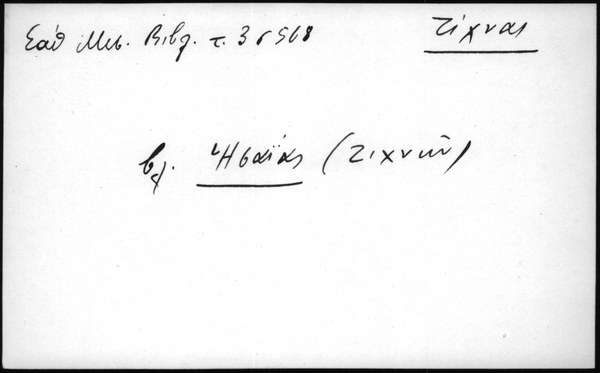 Σαθ Μεσ. Βιβλ. τ. 3 σ 568
Ζίχνας
βλ. Ἡσαΐας (Ζιχνῶν)